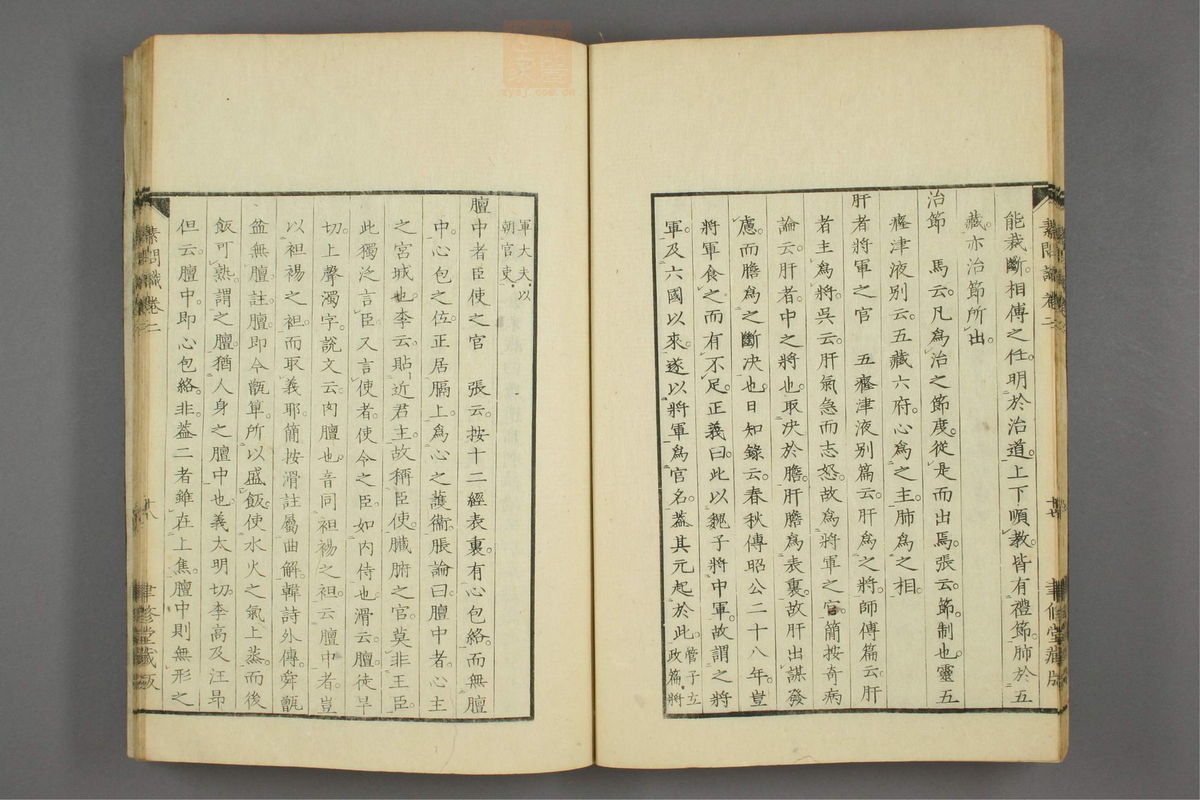 能裁斷。相傳之任。明於治道。上下順教。皆有禮節。肺於五
藏。亦治節所出。
治節　馬云。凡爲治之節度。從是而出焉。張云。節。制也。靈五
癃津液別云。五藏六府。心爲之主。肺爲之相。
肝者將軍之官　五癃津液別篇云。肝爲之將。師傳篇云。肝
者主爲將。吳云。肝氣急而志怒。故爲將軍之官。簡按奇病
論云。肝者。中之將也。取決於膽。肝膽爲表裏。故肝出謀發
慮。而膽爲之斷決也。日知錄云。春秋傳昭公二十八年。豈
將軍食之而有不足。正義曰。此以魏子將中軍。故謂之將
軍。及六國以來。遂以將軍爲官名。蓋其元起於此。管子立
政篇。將
軍大夫。以
朝官吏。
膻中者臣使之官　張云。按十二經表裏。有心包絡。而無膻
中。心包之位。正居膈上。爲心之護衞。脹論曰。膻中者。心主
之宮城也。李云。貼近君主。故稱臣使。臟腑之官。莫非王臣。
此獨泛言臣。又言使者。使令之臣。如內侍也。滑云。膻。徒旱
切。上聲濁字。說文云。肉膻也。音同袒裼之袒。云膻中者。豈
以袒裼之袒。而取義耶。簡按滑註屬曲解。韓詩外傳。舜甑
盆無膻。註。膻。即今甑箄。所以盛飯。使水火之氣上蒸。而後
飯可熟。謂之膻。猶人身之膻中也。義太明切。李高及汪昂
但云。膻中。即心包絡。非。蓋二者雖在上焦。膻中則無形之
素問識卷二
十八
聿修堂藏版